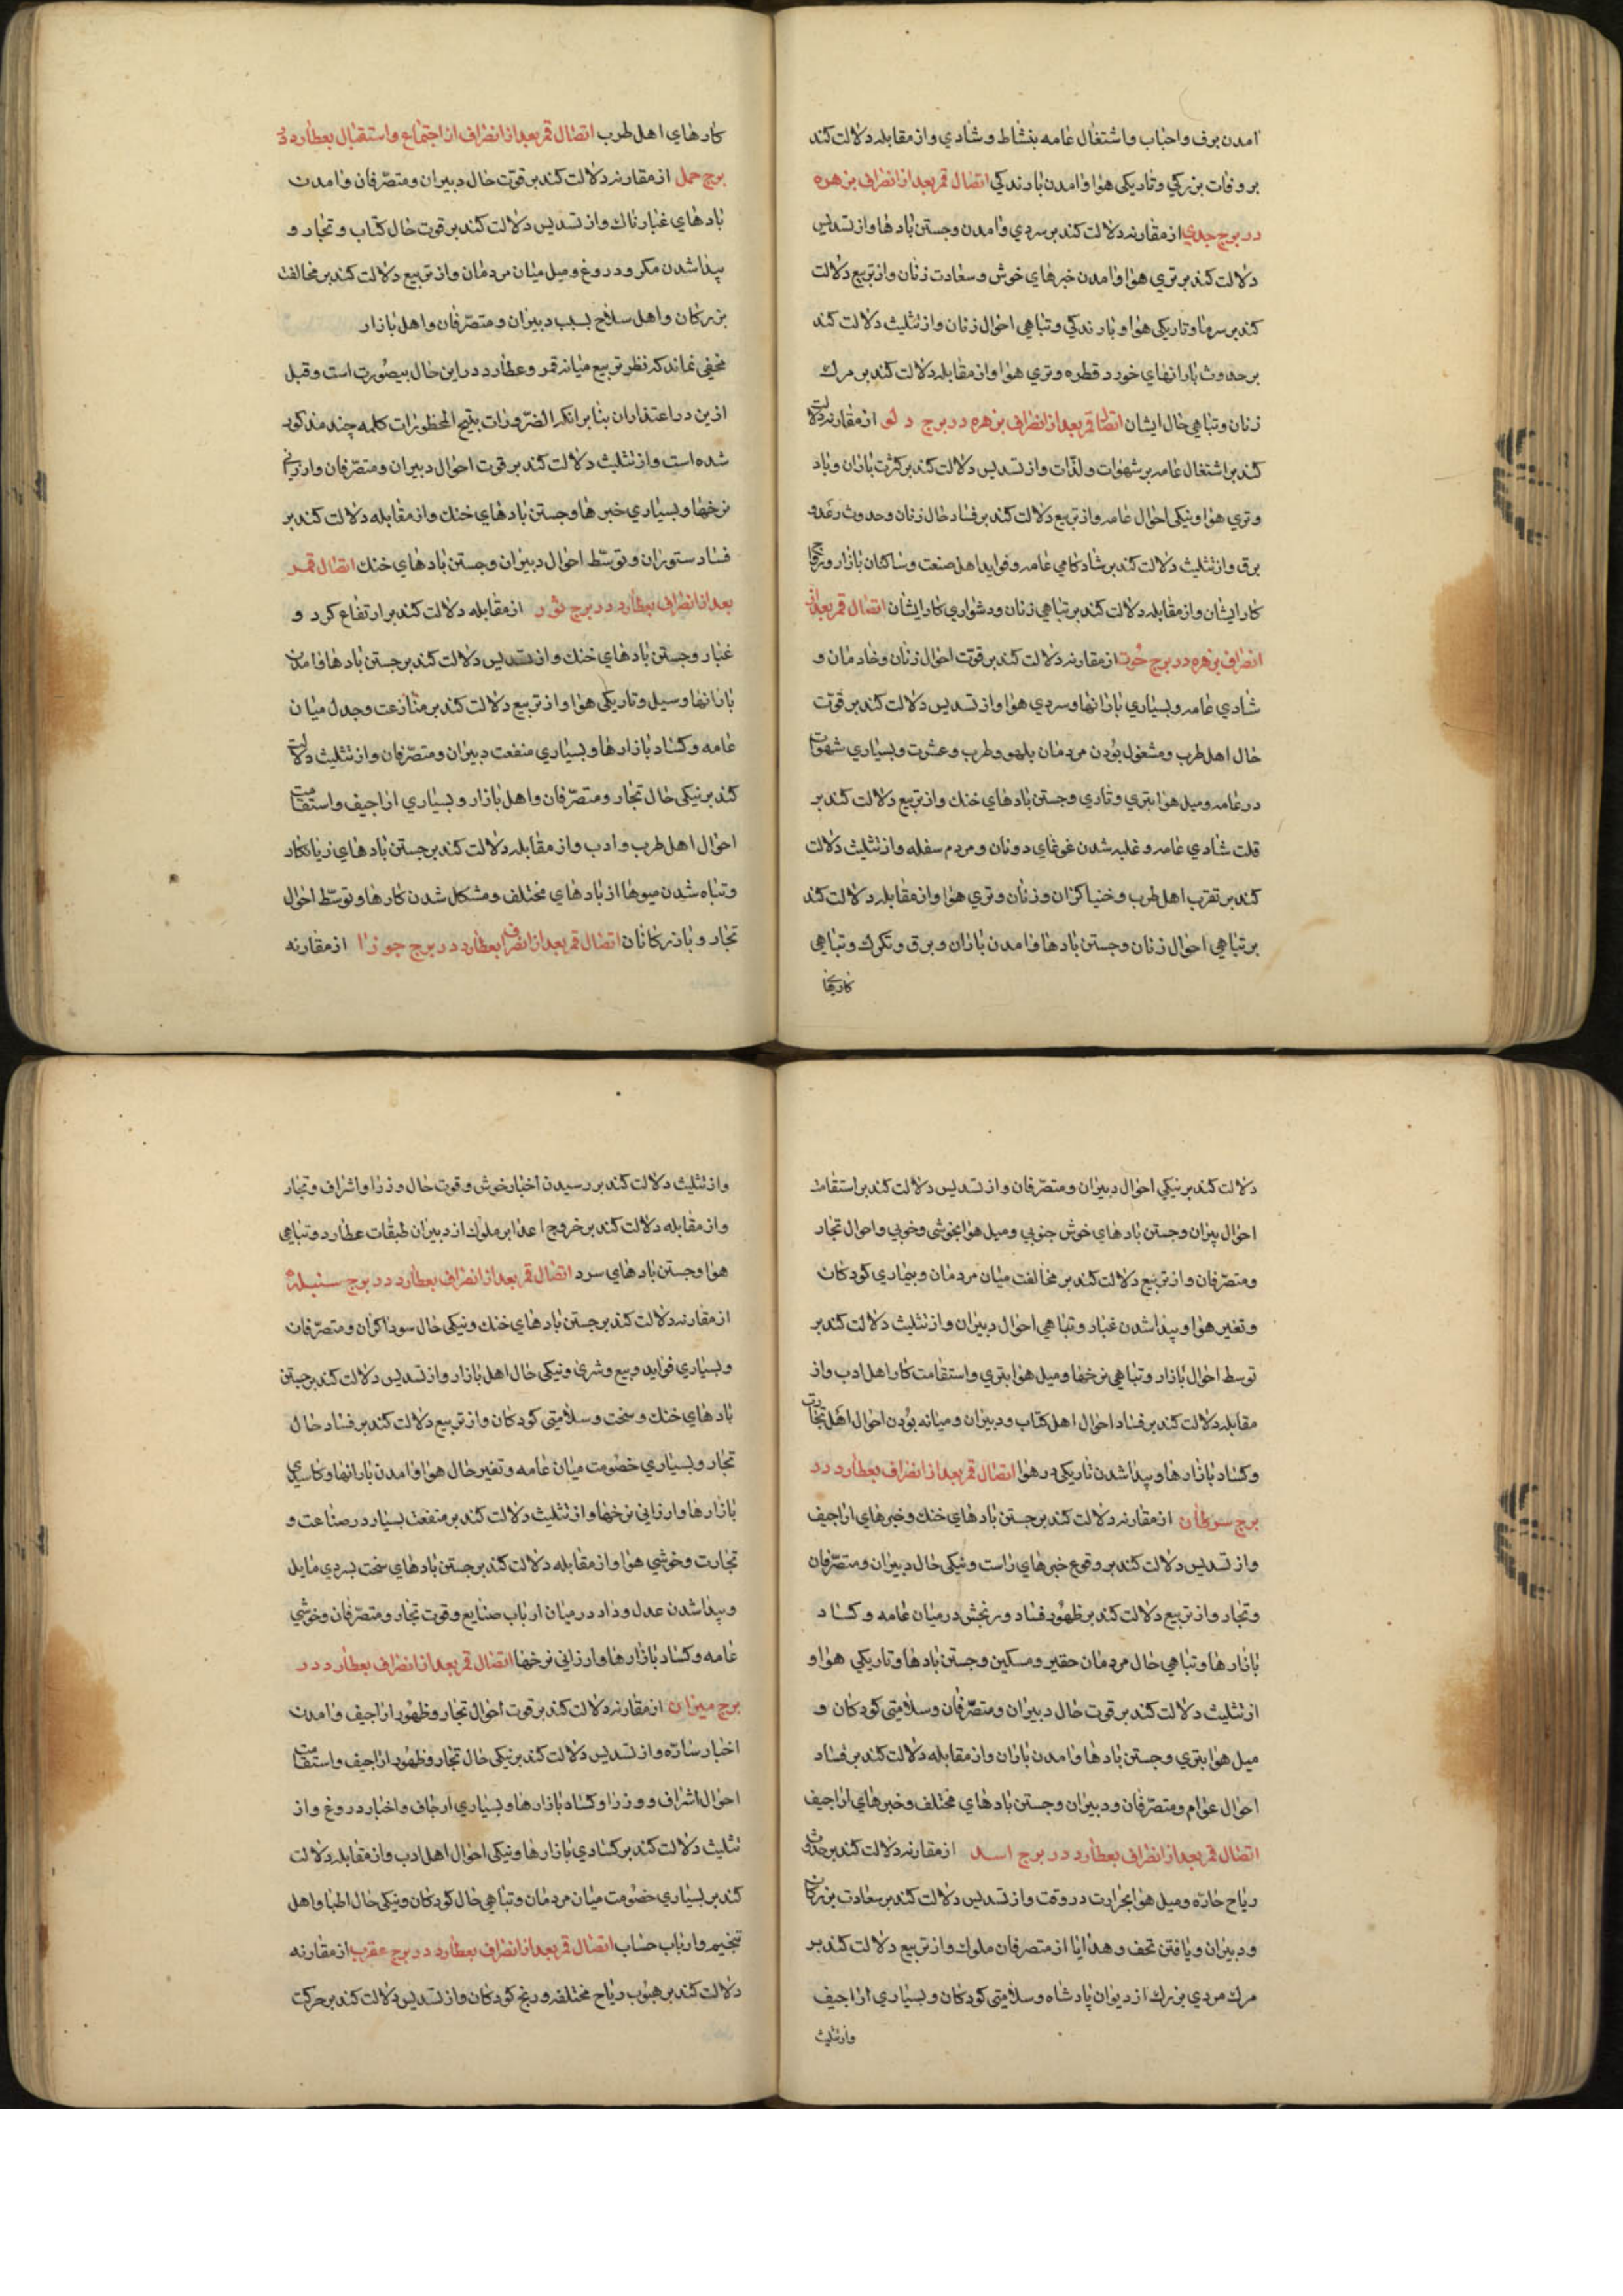 امدن برف واحباب واشتغال عامه بنشاط وشادي واز مقابله دلالت كند
بر وفات بزركي وتاريكي هوا وامدن بارندكي اتصال قمر بعد از انصراف بزهره
در برج جدي از مقارنه دلالت كند بر سردي وامدن وجستن بادها واز تسديس
دلالت كند بر تري هوا وامدن خبرهاي خوش وسعادت زنان واز تربيع دلالت
كند بر سرما وتاريكي هوا وبارندكي وتباهي احوال زنان واز تثليث دلالت كند
بر حدوث بارانهاي خورد قطره وتري هوا واز مقابله دلالت كند بر مرك
زنان وتباهي حال ايشان اتصال قمر بعد از انصراف بزهره در برج دلو از مقارنه دلالت
كند بر اشتغال عامه بر شهوات ولذّات واز تسديس دلالت كند بر كثرت باران وباد
وتري هوا ونيكي احوال عامه واز تربيع دلالت كند بر فساد حال زنان وحدوث رعد و
برق واز تثليث دلالت كند بر شادكامي عامه وفوايد اهل صنعت وساكنان بازار و
كار ايشان واز مقابله دلالت كند بر تباهي زنان ودشواري كار ايشان اتصال قمر بعد از
انصراف بزهره در برج حوت از مقارنه دلالت كند بر قوّت احوال زنان وخادمان و
شادي عامه وبسياري بارانها وسردي هوا واز تسديس دلالت كند بر قوّت
حال اهل طرب ومشغول بودن مردمان بلهو وطرب وعشرت وبسياري شهوات
در عامه وميل هوا بتري وتاري وجستن بادهاي خنك واز تربيع دلالت كند بر
قلت شادي عامه وغلبه شدن غوغاي دونان ومردم سفله واز تثليث دلالت
كند بر تقرب اهل طرب وخنياكران وزنان وتري هوا واز مقابله دلالت كند
بر تباهي احوال زنان وجستن بادها وامدن باران وبرق وتكرك وتباهي
كارهاي
كارهاي اهل طرب اتصال قمر بعد از انصراف از اجتماع واستقبال بعطارد در
برج حمل از مقارنه دلالت كند بر قوّت حال دبيران ومتصرّفان وامدن
بادهاي غبارناك واز تسديس دلالت كند بر قوت حال كتاب وتجار و
پيدا شدن مكر ودروغ وميل ميان مردمان واز تربيع دلالت كند بر مخالفت
بزركان واهل سلاح بسبب دبيران ومتصرّفان واهل بازار
مخفي نماند كه نظر تربيع ميانه قمر وعطارد در اين حال بيصورت است وقبل
ازين در اعتذار ان بنابر انكه الضرورات تبيح المحظورات كلمه چند مذكور
شده است واز تثليث دلالت كند بر قوت احوال دبيران ومتصرّفان وارزاني
نرخها وبسياري خبرها وجستن بادهاي خنك واز مقابله دلالت كند بر
فساد ستوران وتوسّط احوال دبيران وجستن بادهاي خنك اتصال قمر
بعد از انصراف بعطارد در برج ثور از مقابله دلالت كند بر ارتفاع كرد و
غبار وجستن بادهاي خنك واز تسديس دلالت كند بر جستن بادها وامدن
بارانها وسيل وتاريكي هوا واز تربيع دلالت كند بر منازعت وجدل ميان
عامه وكساد بازارها وبسياري منفعت دبيران ومتصرّفان واز تثليث دلالت
كند بر نيكي حال تجار ومتصرّفان واهل بازار وبسياري اراجيف واستقامت
احوال اهل طرب وادب واز مقابله دلالت كند بر جستن بادهاي زيانكار
وتباه شدن ميوها از بادهاي مختلف ومشكل شدن كارها وتوسّط احوال
تجار وبازركانان اتصال قمر بعد از انصراف بعطارد در برج جوزا از مقارنه
دلالت كند بر نيكي احوال دبيران ومتصرّفان واز تسديس دلالت كند بر استقامت
احوال پيران وجستن بادهاي خوش جنوبي وميل هوا بخوشي وخوبي واحوال تجار
ومتصرّفان واز تربيع دلالت كند بر مخالفت ميان مردمان وبيماري كودكان
وتغير هوا وپيدا شدن غبار وتباهي احوال دبيران واز تثليث دلالت كند بر
توسط احوال بازار وتباهي نرخها وميل هوا بتري واستقامت كار اهل ادب واز
مقابله دلالت كند بر فساد احوال اهل كتاب ودبيران وميانه بودن احوال اهل تجارت
وكساد بازارها وپيدا شدن تاريكي در هوا اتصال قمر بعد از انصراف بعطارد در
برج سرطان از مقارنه دلالت كند بر جستن بادهاي خنك وخبرهاي اراجيف
واز تسديس دلالت كند بر وقوع خبرهاي راست ونيكي حال دبيران ومتصرّفان
وتجار واز تربيع دلالت كند بر ظهور فساد ورنجش در ميان عامه وكساد
بازارها وتباهي حال مردمان حقير ومسكين وجستن بادها وتاريكي هوا و
از تثليث دلالت كند بر قوت حال دبيران ومتصرّفان وسلامتي كودكان و
ميل هوا بتري وجستن بادها وامدن باران واز مقابله دلالت كند بر فساد
احوال عوام ومتصرّفان ودبيران وجستن بادهاي مختلف وخبرهاي اراجيف
اتصال قمر بعد از انصراف بعطارد در برج اسد از مقارنه دلالت كند بر حدوث
رياح حارّه وميل هوا بحرارت در وقت واز تسديس دلالت كند بر سعادت بزركان
ودبيران ويافتن تحف وهدايا از متصرفان ملوك واز تربيع دلالت كند بر
مرك مردي بزرك از ديوان پادشاه وسلامتي كودكان وبسياري اراجيف
واز تثليث
واز تثليث دلالت كند بر رسيدن اخبار خوش وقوت حال وزرا واشراف وتجار
واز مقابله دلالت كند بر خروج اعدا بر ملوك از دبيران طبقات عطارد وتباهي
هوا وجستن بادهاي سرد اتصال قمر بعد از انصراف بعطارد در برج سنبله
از مقارنه دلالت كند بر جستن بادهاي خنك ونيكي حال سوداكران ومتصرّفان
وبسياري فوايد وبيع وشرى ونيكي حال اهل بازار واز تسديس دلالت كند بر جستن
بادهاي خنك وسخت وسلامتي كودكان واز تربيع دلالت كند بر فساد حال
تجار وبسياري خصومت ميان عامه وتغير حال هوا وامدن بارانها وكاسدي
بازارها وارزاني نرخها واز تثليث دلالت كند بر منفعت بسيار در صناعت و
تجارت وخوشي هوا واز مقابله دلالت كند بر جستن بادهاي سخت بسردي مايل
وپيدا شدن عدل وداد در ميان ارباب صنايع وقوت تجار ومتصرّفان وخوشي
عامه وكساد بازارها وارزاني نرخها اتصال قمر بعد از انصراف بعطارد در
برج ميزان از مقارنه دلالت كند بر قوت احوال تجار وظهور اراجيف وامدن
اخبار سارّه واز تسديس دلالت كند بر نيكي حال تجار وظهور اراجيف واستقامت
احوال اشراف ووزرا وكساد بازارها وبسياري ارجاف واخبار دروغ واز
تثليث دلالت كند بر كسادي بازارها ونيكي احوال اهل ادب واز مقابله دلالت
كند بر بسياري خصومت ميان مردمان وتباهي حال كودكان ونيكي حال اطبا واهل
تنجيم وارباب حساب اتصال قمر بعد از انصراف بعطارد در برج عقرب از مقارنه
دلالت كند بر هبوب رياح مختلفه ورنج كودكان واز تسديس دلالت كند بر حركت